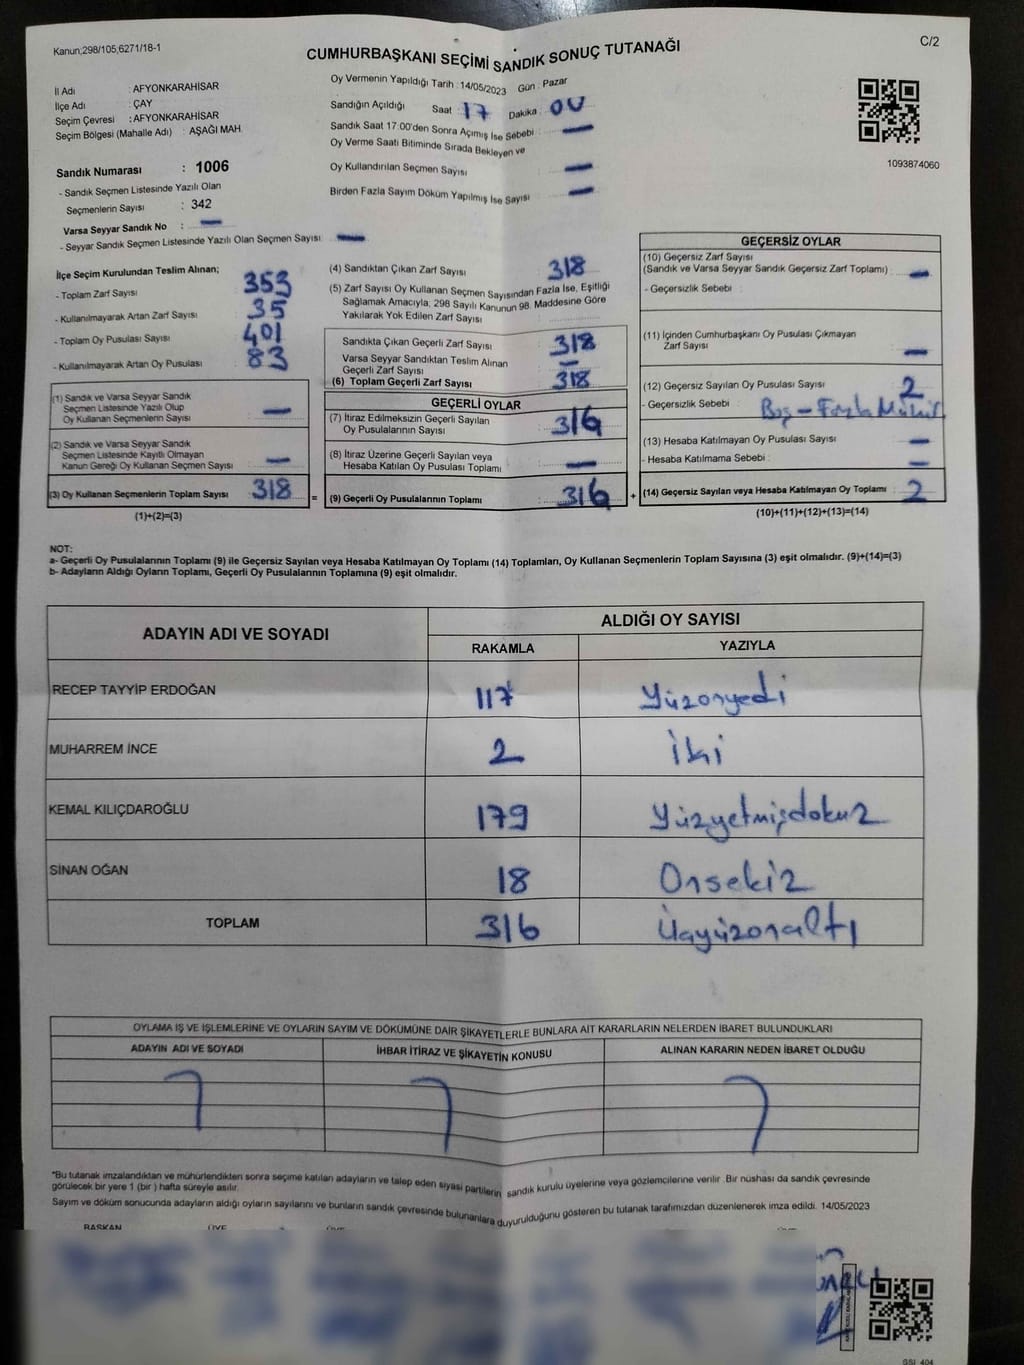 Kanun;298/105,6271/18-1
C/2
CUMHURBAŞKANI SEÇİMİ SANDIK SONUÇ TUTANAĞI
İl Adı : AFYONKARAHİSAR
İlçe Adı : ÇAY
Seçim Çevresi : AFYONKARAHİSAR
Seçim Bölgesi (Mahalle Adı) : AŞAĞI MAH
Sandık Numarası : 1006
- Sandık Seçmen Listesinde Yazılı Olan
Seçmenlerin Sayısı : 342
Varsa Seyyar Sandık No : —
- Seyyar Sandık Seçmen Listesinde Yazılı Olan Seçmen Sayısı : —
Oy Vermenin Yapıldığı Tarih : 14/05/2023 Gün : Pazar
Sandığın Açıldığı Saat : 17 Dakika : 00
Sandık Saat 17:00'den Sonra Açımış İse Sebebi : —
Oy Verme Saati Bitiminde Sırada Bekleyen ve
Oy Kullandırılan Seçmen Sayısı —
Birden Fazla Sayım Döküm Yapılmış İse Sayısı —
1093874060
İlçe Seçim Kurulundan Teslim Alınan;
- Toplam Zarf Sayısı 353
- Kullanılmayarak Artan Zarf Sayısı 35
- Toplam Oy Pusulası Sayısı 401
- Kullanılmayarak Artan Oy Pusulası 83
(1) Sandık ve Varsa Seyyar Sandık
Seçmen Listesinde Yazılı Olup
Oy Kullanan Seçmenlerin Sayısı —
(2) Sandık ve Varsa Seyyar Sandık
Seçmen Listesinde Kayıtlı Olmayan
Kanun Gereği Oy Kullanan Seçmen Sayısı —
(3) Oy Kullanan Seçmenlerin Toplam Sayısı 318
(1)+(2)=(3)
(4) Sandıktan Çıkan Zarf Sayısı 318
(5) Zarf Sayısı Oy Kullanan Seçmen Sayısından Fazla İse, Eşitliği
Sağlamak Amacıyla; 298 Sayılı Kanunun 98. Maddesine Göre
Yakılarak Yok Edilen Zarf Sayısı
Sandıkta Çıkan Geçerli Zarf Sayısı 318
Varsa Seyyar Sandıktan Teslim Alınan
Geçerli Zarf Sayısı —
(6) Toplam Geçerli Zarf Sayısı 318
GEÇERLİ OYLAR
(7) İtiraz Edilmeksizin Geçerli Sayılan
Oy Pusulalarının Sayısı 316
(8) İtiraz Üzerine Geçerli Sayılan veya
Hesaba Katılan Oy Pusulası Toplamı —
= (9) Geçerli Oy Pusulalarının Toplamı 316
GEÇERSİZ OYLAR
(10) Geçersiz Zarf Sayısı
(Sandık ve Varsa Seyyar Sandık Geçersiz Zarf Toplamı) : —
- Geçersizlik Sebebi :
(11) İçinden Cumhurbaşkanı Oy Pusulası Çıkmayan
Zarf Sayısı —
(12) Geçersiz Sayılan Oy Pusulası Sayısı : 2
- Geçersizlik Sebebi : Boş – Fazla Mühür
(13) Hesaba Katılmayan Oy Pusulası Sayısı : —
- Hesaba Katılmama Sebebi : —
+ (14) Geçersiz Sayılan veya Hesaba Katılmayan Oy Toplamı 2
(10)+(11)+(12)+(13)=(14)
NOT:
a- Geçerli Oy Pusulalarının Toplamı (9) ile Geçersiz Sayılan veya Hesaba Katılmayan Oy Toplamı (14) Toplamları, Oy Kullanan Seçmenlerin Toplam Sayısına (3) eşit olmalıdır. (9)+(14)=(3)
b- Adayların Aldığı Oyların Toplamı, Geçerli Oy Pusulalarının Toplamına (9) eşit olmalıdır.
ADAYIN ADI VE SOYADI
ALDIĞI OY SAYISI
RAKAMLA YAZIYLA
RECEP TAYYİP ERDOĞAN 117 Yüzonyedi
MUHARREM İNCE 2 İki
KEMAL KILIÇDAROĞLU 179 Yüzyetmişdokuz
SİNAN OĞAN 18 Onsekiz
TOPLAM 316 Üçyüzonaltı
OYLAMA İŞ VE İŞLEMLERİNE VE OYLARIN SAYIM VE DÖKÜMÜNE DAİR ŞİKAYETLERLE BUNLARA AİT KARARLARIN NELERDEN İBARET BULUNDUKLARI
ADAYIN ADI VE SOYADI İHBAR İTİRAZ VE ŞİKAYETİN KONUSU ALINAN KARARIN NEDEN İBARET OLDUĞU
*Bu tutanak imzalandıktan ve mühürlendikten sonra seçime katılan adayların ve talep eden siyasi partilerin sandık kurulu üyelerine veya gözlemcilerine verilir. Bir nüshası da sandık çevresinde
görülecek bir yere 1 (bir) hafta süreyle asılır.
Sayım ve döküm sonucunda adayların aldığı oyların sayılarını ve bunların sandık çevresinde bulunanlara duyurulduğunu gösteren bu tutanak tarafımızdan düzenlenerek imza edildi. 14/05/2023
BAŞKAN ÜYE ÜYE